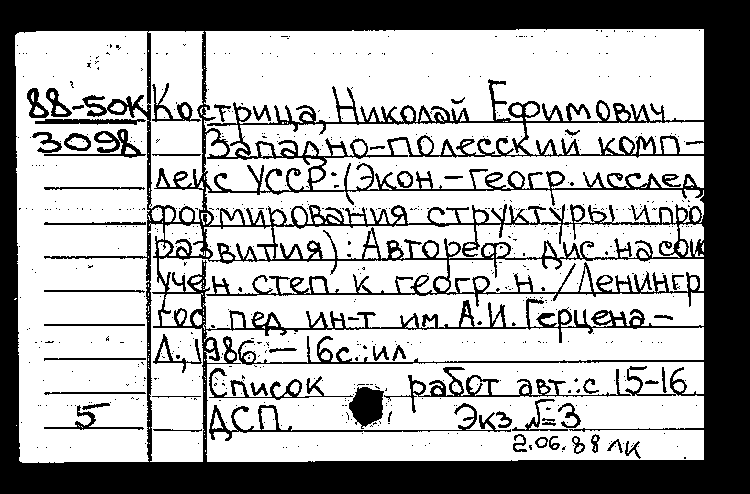 88-50К Кострица, Николай Ефимович
3098 Западно-полесский комп-
лекс УССР: (Экон.-геогр. исслед.
формирования структуры и про
развития): Автореф. дис. на соис
учен. степ. к. геогр. н. / Ленингр
гос. пед. ин-т им. А.И. Герцена.-
Л., 1986.- 16с.: ил.
Список работ авт.: с. 15-16
5 ДСП. Экз. №3
2.06.88 ЛК